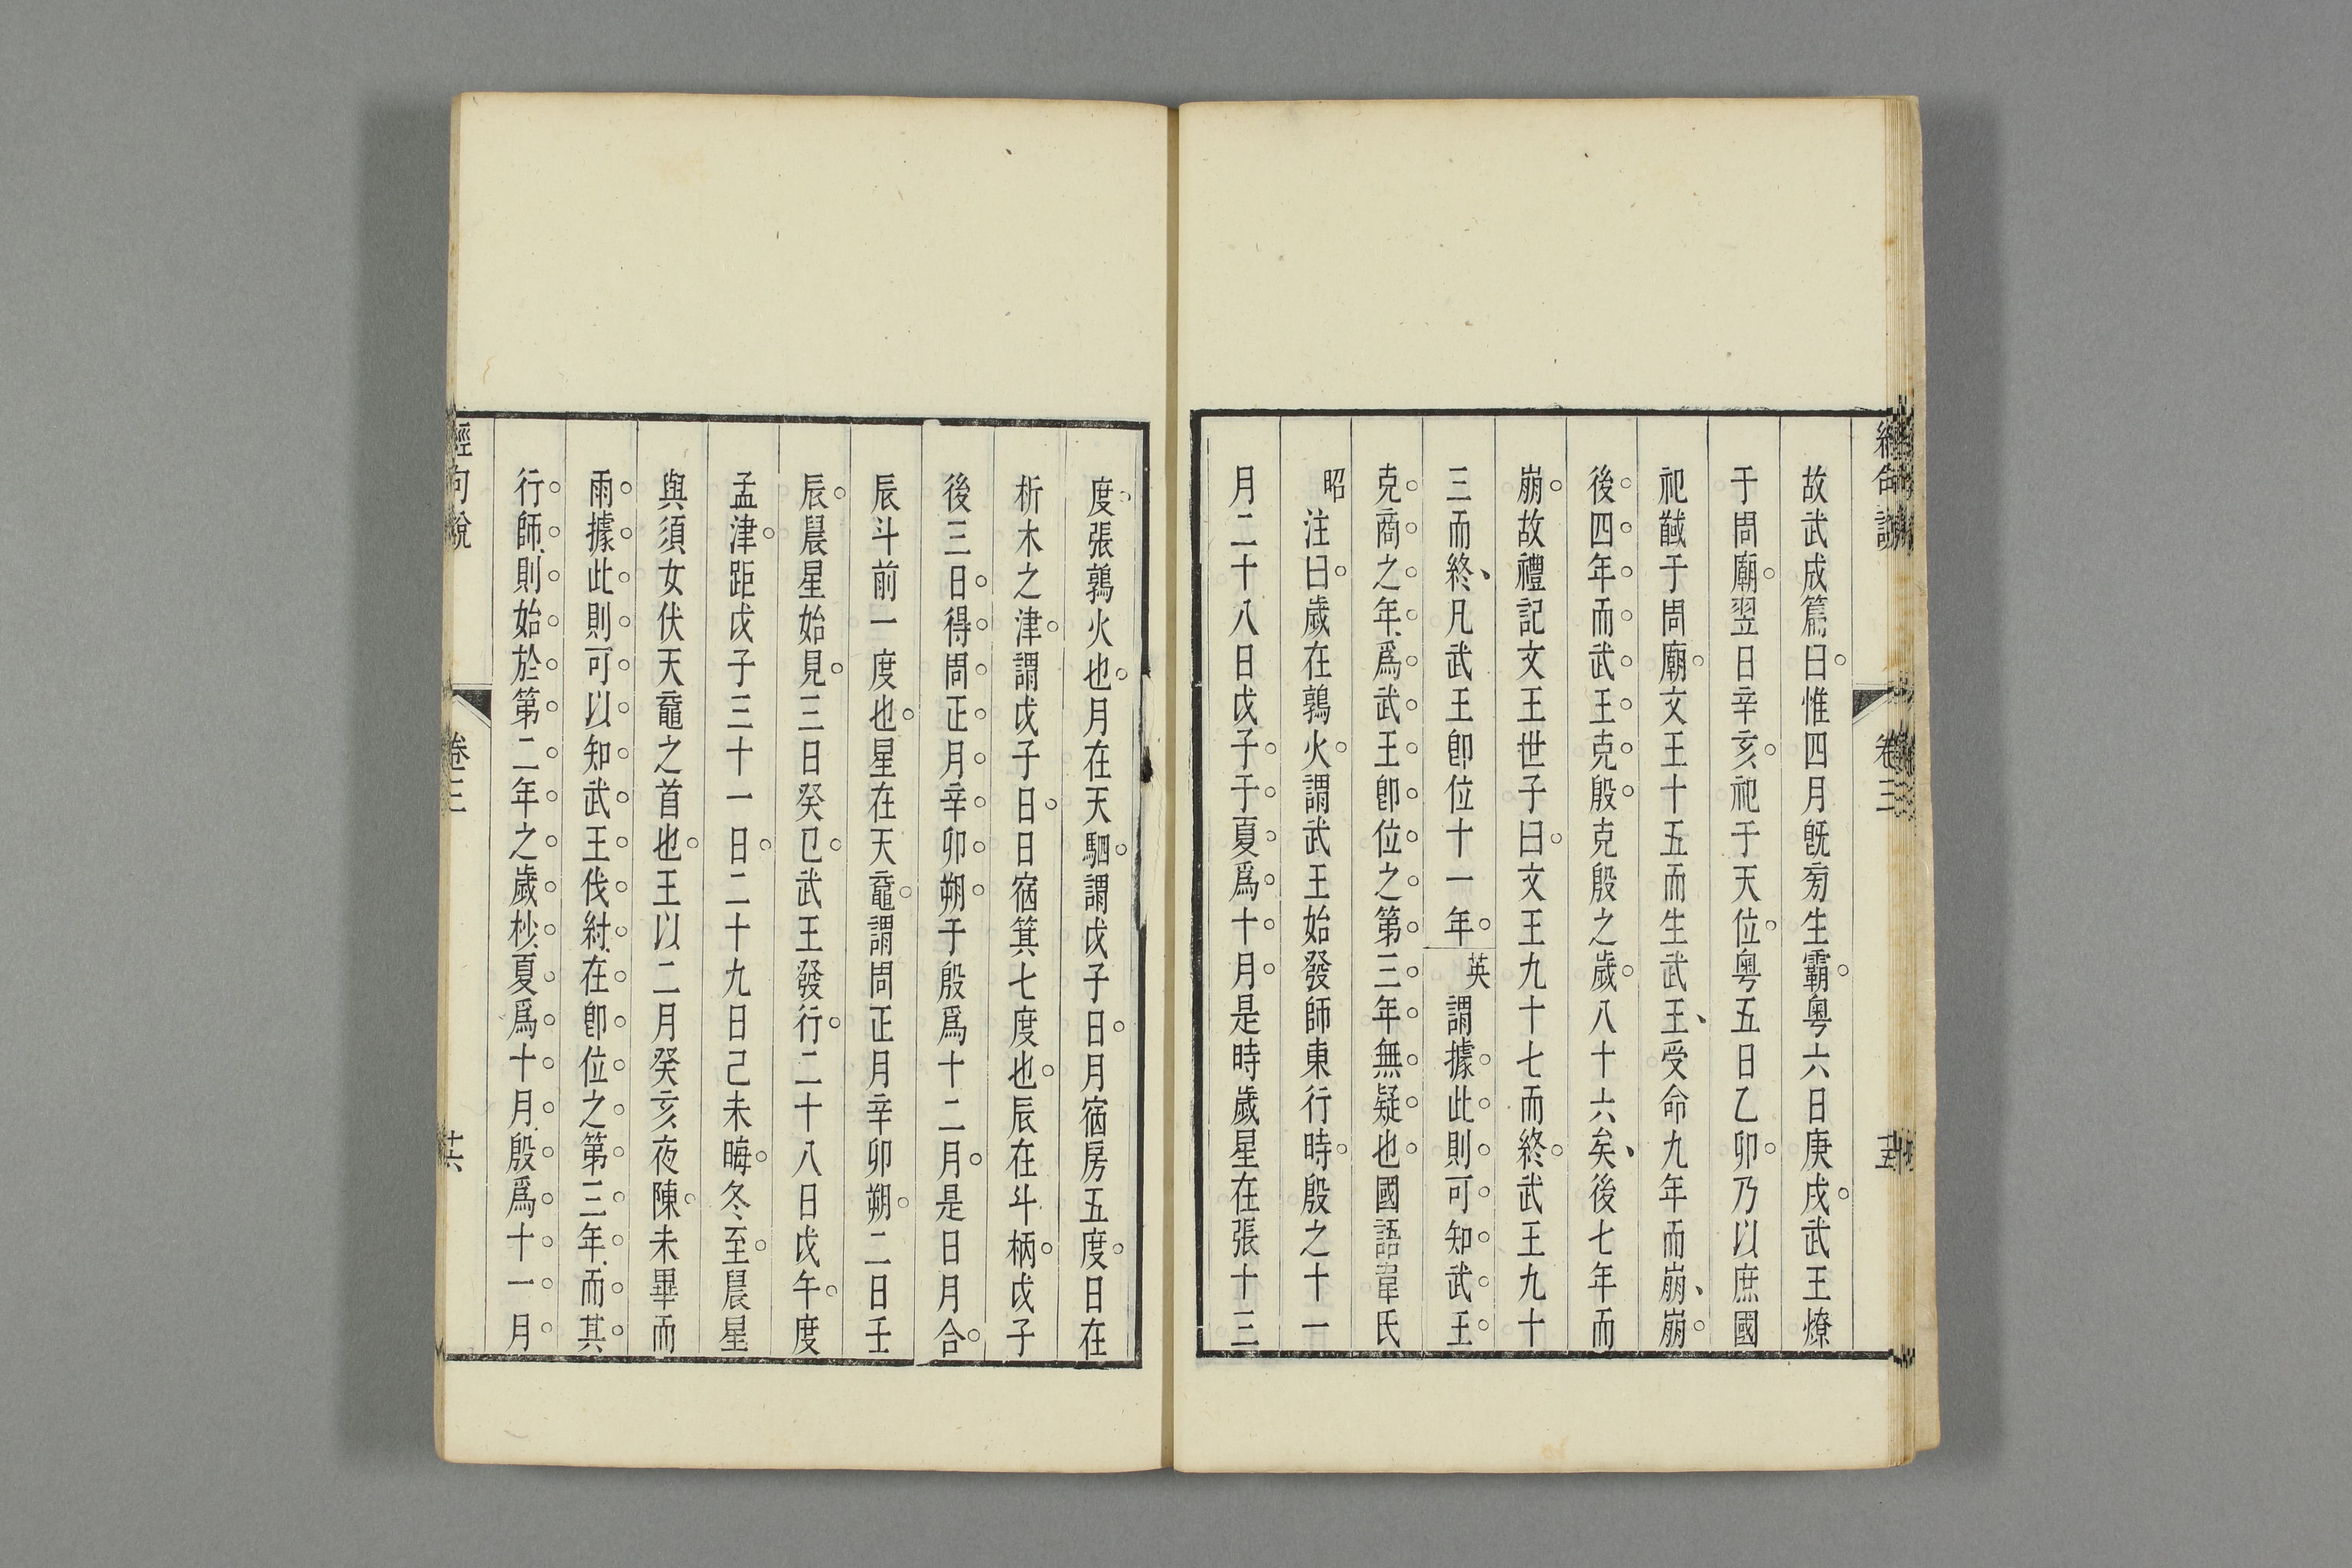 故武成篇曰惟四月旣旁生霸粵六日庚戌武王燎
于周廟翌日辛亥祀于天位粵五日乙卯乃以庶國
祀馘于周廟文王十五而生武王受命九年而崩崩
後四年而武王克殷克殷之歲八十六矣後七年而
崩故禮記文王世子曰文王九十七而終武王九十
三而終凡武王卽位十一年英謂據此則可知武王
克商之年爲武王卽位之第三年無疑也國語韋氏
昭注曰歲在鶉火謂武王始發師東行時殷之十一
月二十八日戊子于夏爲十月是時歲星在張十三
度張鶉火也月在天駟謂戊子日月宿房五度日在
析木之津謂戊子日日宿箕七度也辰在斗柄戊子
後三日得周正月辛卯朔于殷爲十二月是日月合
辰斗前一度也星在天黿謂周正月辛卯朔二日壬
辰晨星始見三日癸巳武王發行二十八日戊午度
孟津距戊子三十一日二十九日己未晦冬至晨星
與須女伏天黿之首也王以二月癸亥夜陳未畢而
雨據此則可以知武王伐紂在卽位之第三年而其
行師則始於第二年之歲杪夏爲十月殷爲十一月
經句說
卷三
十六